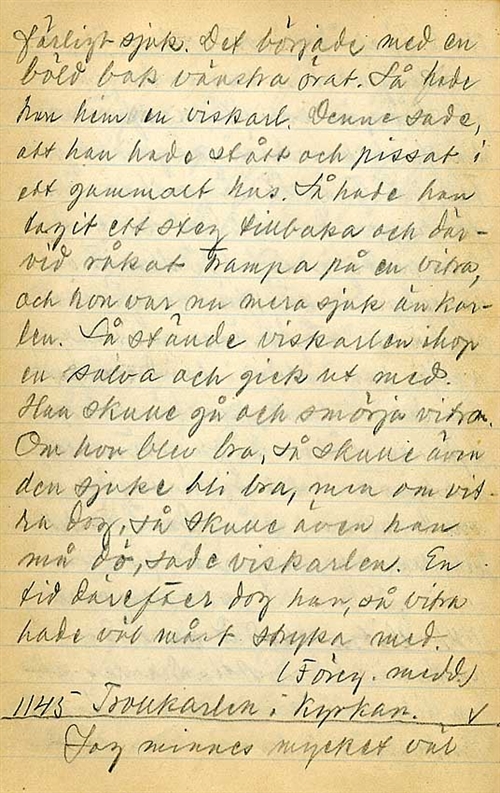 färligt sjuk. Det började med en
böld bak vänstra örat. Så hade
han hem en viskarl. Denne sade,
att han hade stått och pissat i
ett gammalt hus. Så hade han
tagit ett steg tillbaka och där-
vid råkat trampa på en vitra,
och hon var nu mera sjuk än kar-
len. Så stände viskarlen ihop
en salva och gick ut med.
Han skulle gå och smörja vitran.
Om hon blev bra, så skulle även
den sjuke bli bra, men om vit-
ra dog, så skulle även han
må dö, sade viskarlen. En
tid därefter dog han, så vitra
hade väl mått stryka med.
(Föreg. medd.)
1145 Trollkarlen i kyrkan. v
Jag minnes mycket väl